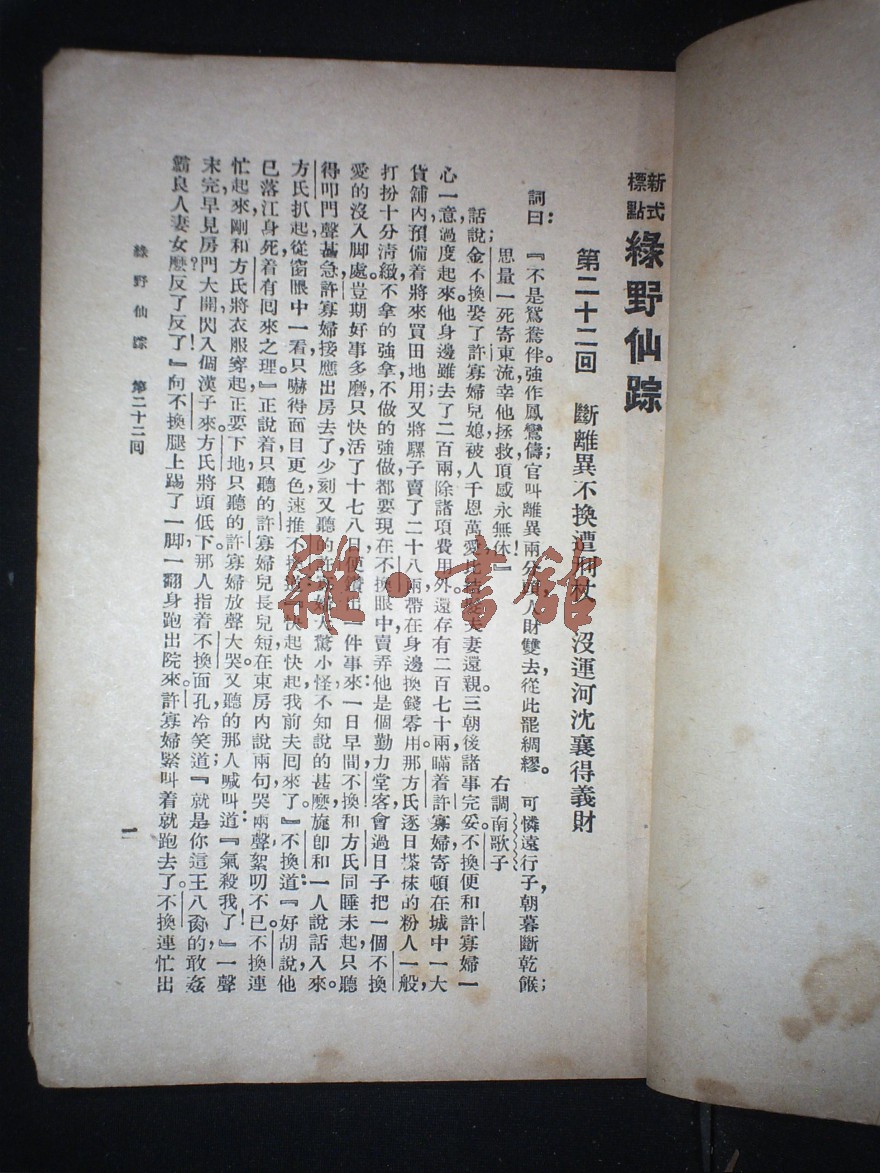 新式標點 綠野仙踪
第二十二回 斷離異不換遭刑杖 沒運河沈襄得義財
詞曰：『不是鴛鴦伴。強作鳳鸞儔；官叫離異兩分頭，人財雙去從此罷綢繆。 可憐遠行子，朝暮斷乾餱；
思量一死寄東流，幸他拯救頂感永無休！』 右調南歌子
話說金不換娶了許寡婦兒媳，被人千恩萬愛，比結髮夫妻還親。三朝後諸事完妥。不換便和許寡婦一
心一意，過度起來。他身邊雖去了二百兩，除諸項費用外，還存有二百七十兩，瞞着許寡婦寄頓在城中一大
貨舖內，預備着將來買田地用；又將騾子賣了二十八兩，帶在身邊換錢零用。那方氏逐日搽抹的粉人一般，
打扮十分清緻，不拿的強拿，不做的強做，都要現在不換眼中賣弄他是個勤力堂客，會過日子，把一個不換
愛的沒入脚處。豈期好事多磨，只快活了十七八日，便出一件事來：一日早間，不換和方氏同睡未起，只聽
得叩門聲甚急，許寡婦接應出房去了。少刻又聽的許寡婦大驚小怪，不知說的甚麽，旋卽和一人說話入來。
方氏扒起，從窗眼中一看，只嚇得面目更色，速推不換道：『快起快起，我前夫囘來了。』不換道：『好胡說，他
已落江身死，着有囘來之理。』正說着，只聽的許寡婦兒長兒短，在東房內說兩句，哭兩聲，絮叨不已。不換連
忙起來，剛和方氏將衣服穿起，正要下地，只聽的許寡婦放聲大哭。又聽的那人喊叫道：『氣殺我了！』一聲
未完，早見房門大開，閃入個漢子來。方氏將頭低下。那人指着不換面孔冷笑道；『就是你這王八的，敢姦
霸良人妻女麽？反了反了！』向不換腿上踢了一脚，一翻身跑出院來。許寡婦緊叫着就跑去了。不換連忙出
綠野仙踪 第二十二囘
一
雜·書館